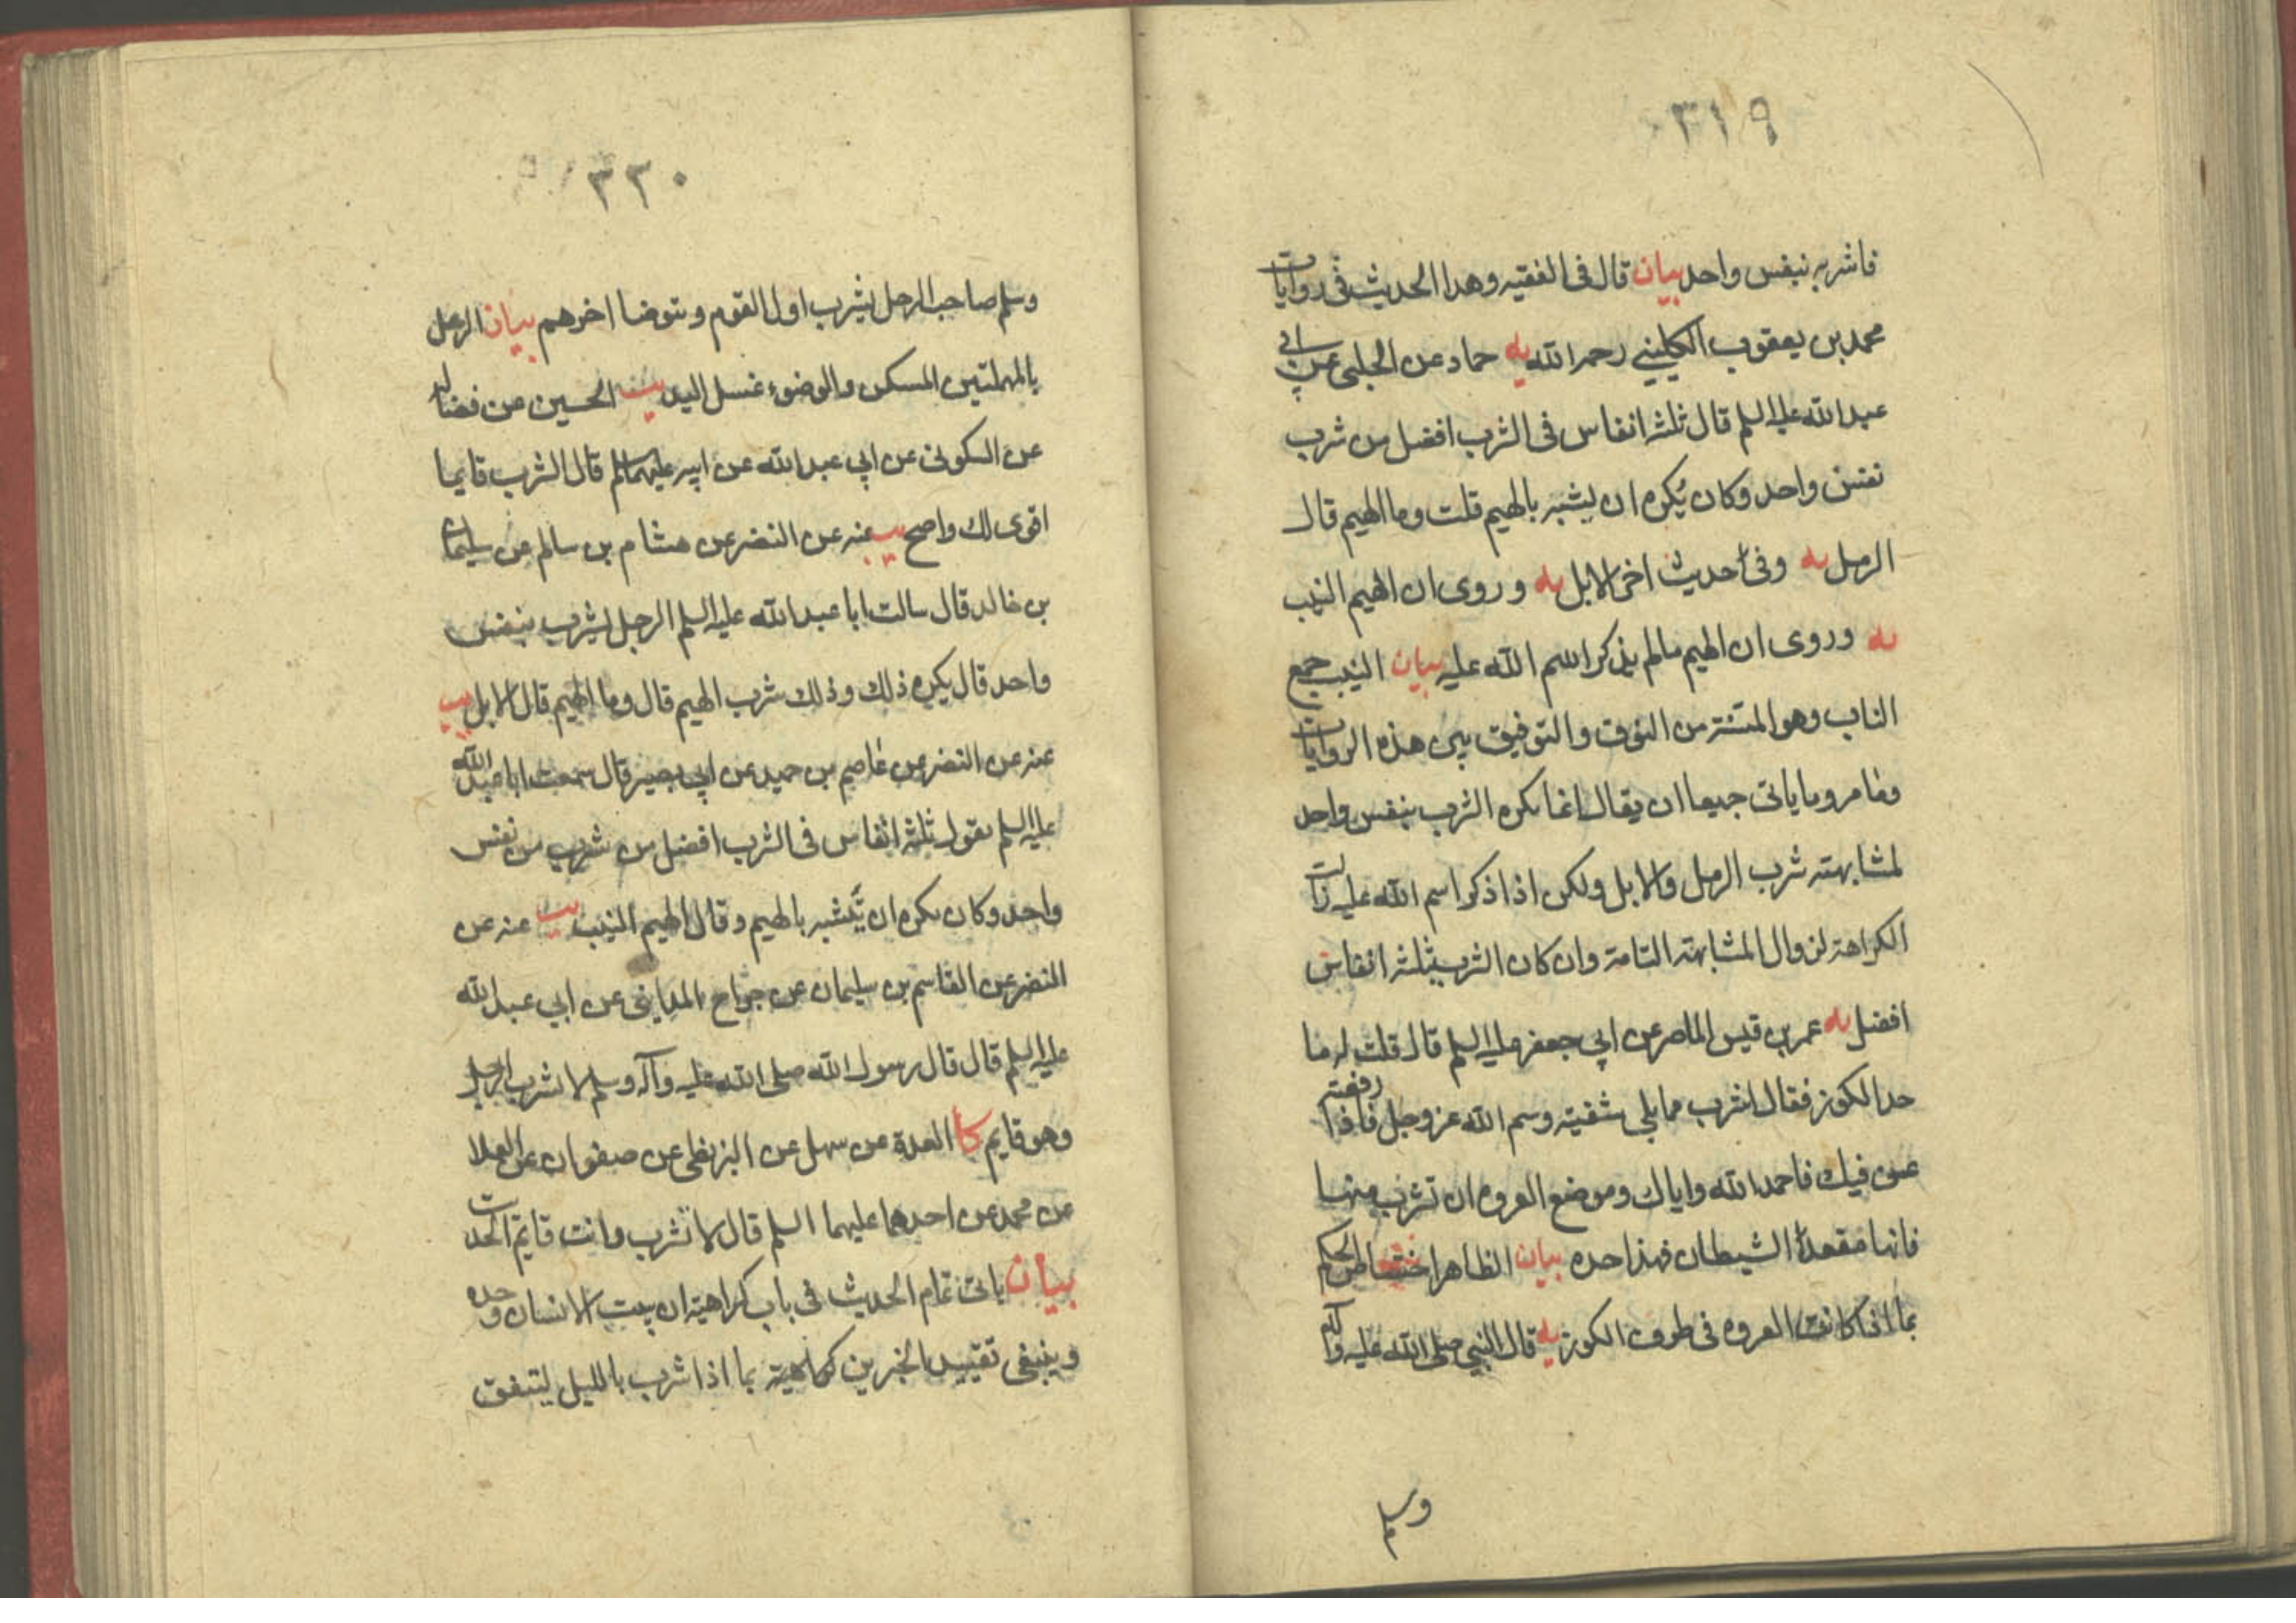 ٣١٩
فاشربه بنفس واحد بيان قال فى الفقيه وهذا الحديث فى روايات
محمد بن يعقوب الكليني رحمه الله يه حماد عن الحلبى عن ابي
عبد الله عليه السلم قال ثلثة انفاس فى الشرب افضل من شرب
نفس واحد وكان يُكره ان يشبه بالهيم قلت وما الهيم قال
الرمل يه وفى حديث اخر الابل يه وروى ان الهيم النيب
يه وروى ان الهيم مالم يذكر اسم الله عليه بيان النيب جمع
الناب وهو المسنة من النوق والتوفيق بين هذه الروايات
وما مر وما ياتى جميعا ان يقال انما يكره الشرب بنفس واحد
لمشابهته شرب الرمل والابل ولكن اذا ذكر اسم الله عليه زالت
الكراهة لزوال المشابهة التامة وان كان الشرب بثلثة انفاس
افضل يه عمر بن قيس الماصر عن ابي جعفر عليه السلم قال قلت له ما
حد الكوز فقال اشرب مما يلي شفتيه وسم الله عز وجل فاذا رفعته
عن فيك فاحمد الله واياك وموضع العروه ان تشرب منها
فانها مقعد الشيطان فهذا حده بيان الظاهر اختصاص الحكم
بما اذا كانت العروه فى طرف الكوز يه قال النبي صلى الله عليه وآله
وسلم
٣٢٠
وسلم صاحب الرحل يشرب اول القوم ويتوضا اخرهم بيان الرحل
بالمهملتين المسكن والوضوء غسل اليد يب الحسين عن فضاله
عن السكونى عن ابي عبد الله عن ابيه عليهما السلم قال الشرب قايما
اقوى لك واصح يب عنه عن النضر عن هشام بن سالم عن سليمان
بن خالد قال سالت ابا عبد الله عليه السلم الرجل يشرب بنفس
واحد قال يكره ذلك وذلك شرب الهيم قال وما الهيم قال الابل يب
عنه عن النضر عن عاصم بن حميد عن ابي بصير قال سمعت ابا عبد الله
عليه السلم يقول ثلثة انفاس فى الشرب افضل من شرب من نفس
واحد وكان يكره ان يتشبه بالهيم وقال الهيم النيب يب عنه عن
النضر عن القاسم بن سليمان عن جراح المداينى عن ابي عبد الله
عليه السلم قال قال رسول الله صلى الله عليه وآله وسلم لا يشرب الرجل
وهو قايم كا العدة عن سهل عن البزنطى عن صفوان عن العلا
عن محمد عن احدهما عليهما السلم قال لا تشرب وانت قايم الحديث
بيان ياتى تمام الحديث فى باب كراهية ان يبيت الانسان وحده
وينبغى تقييد الخبرين كراهية بما اذا شرب بالليل ليتفق